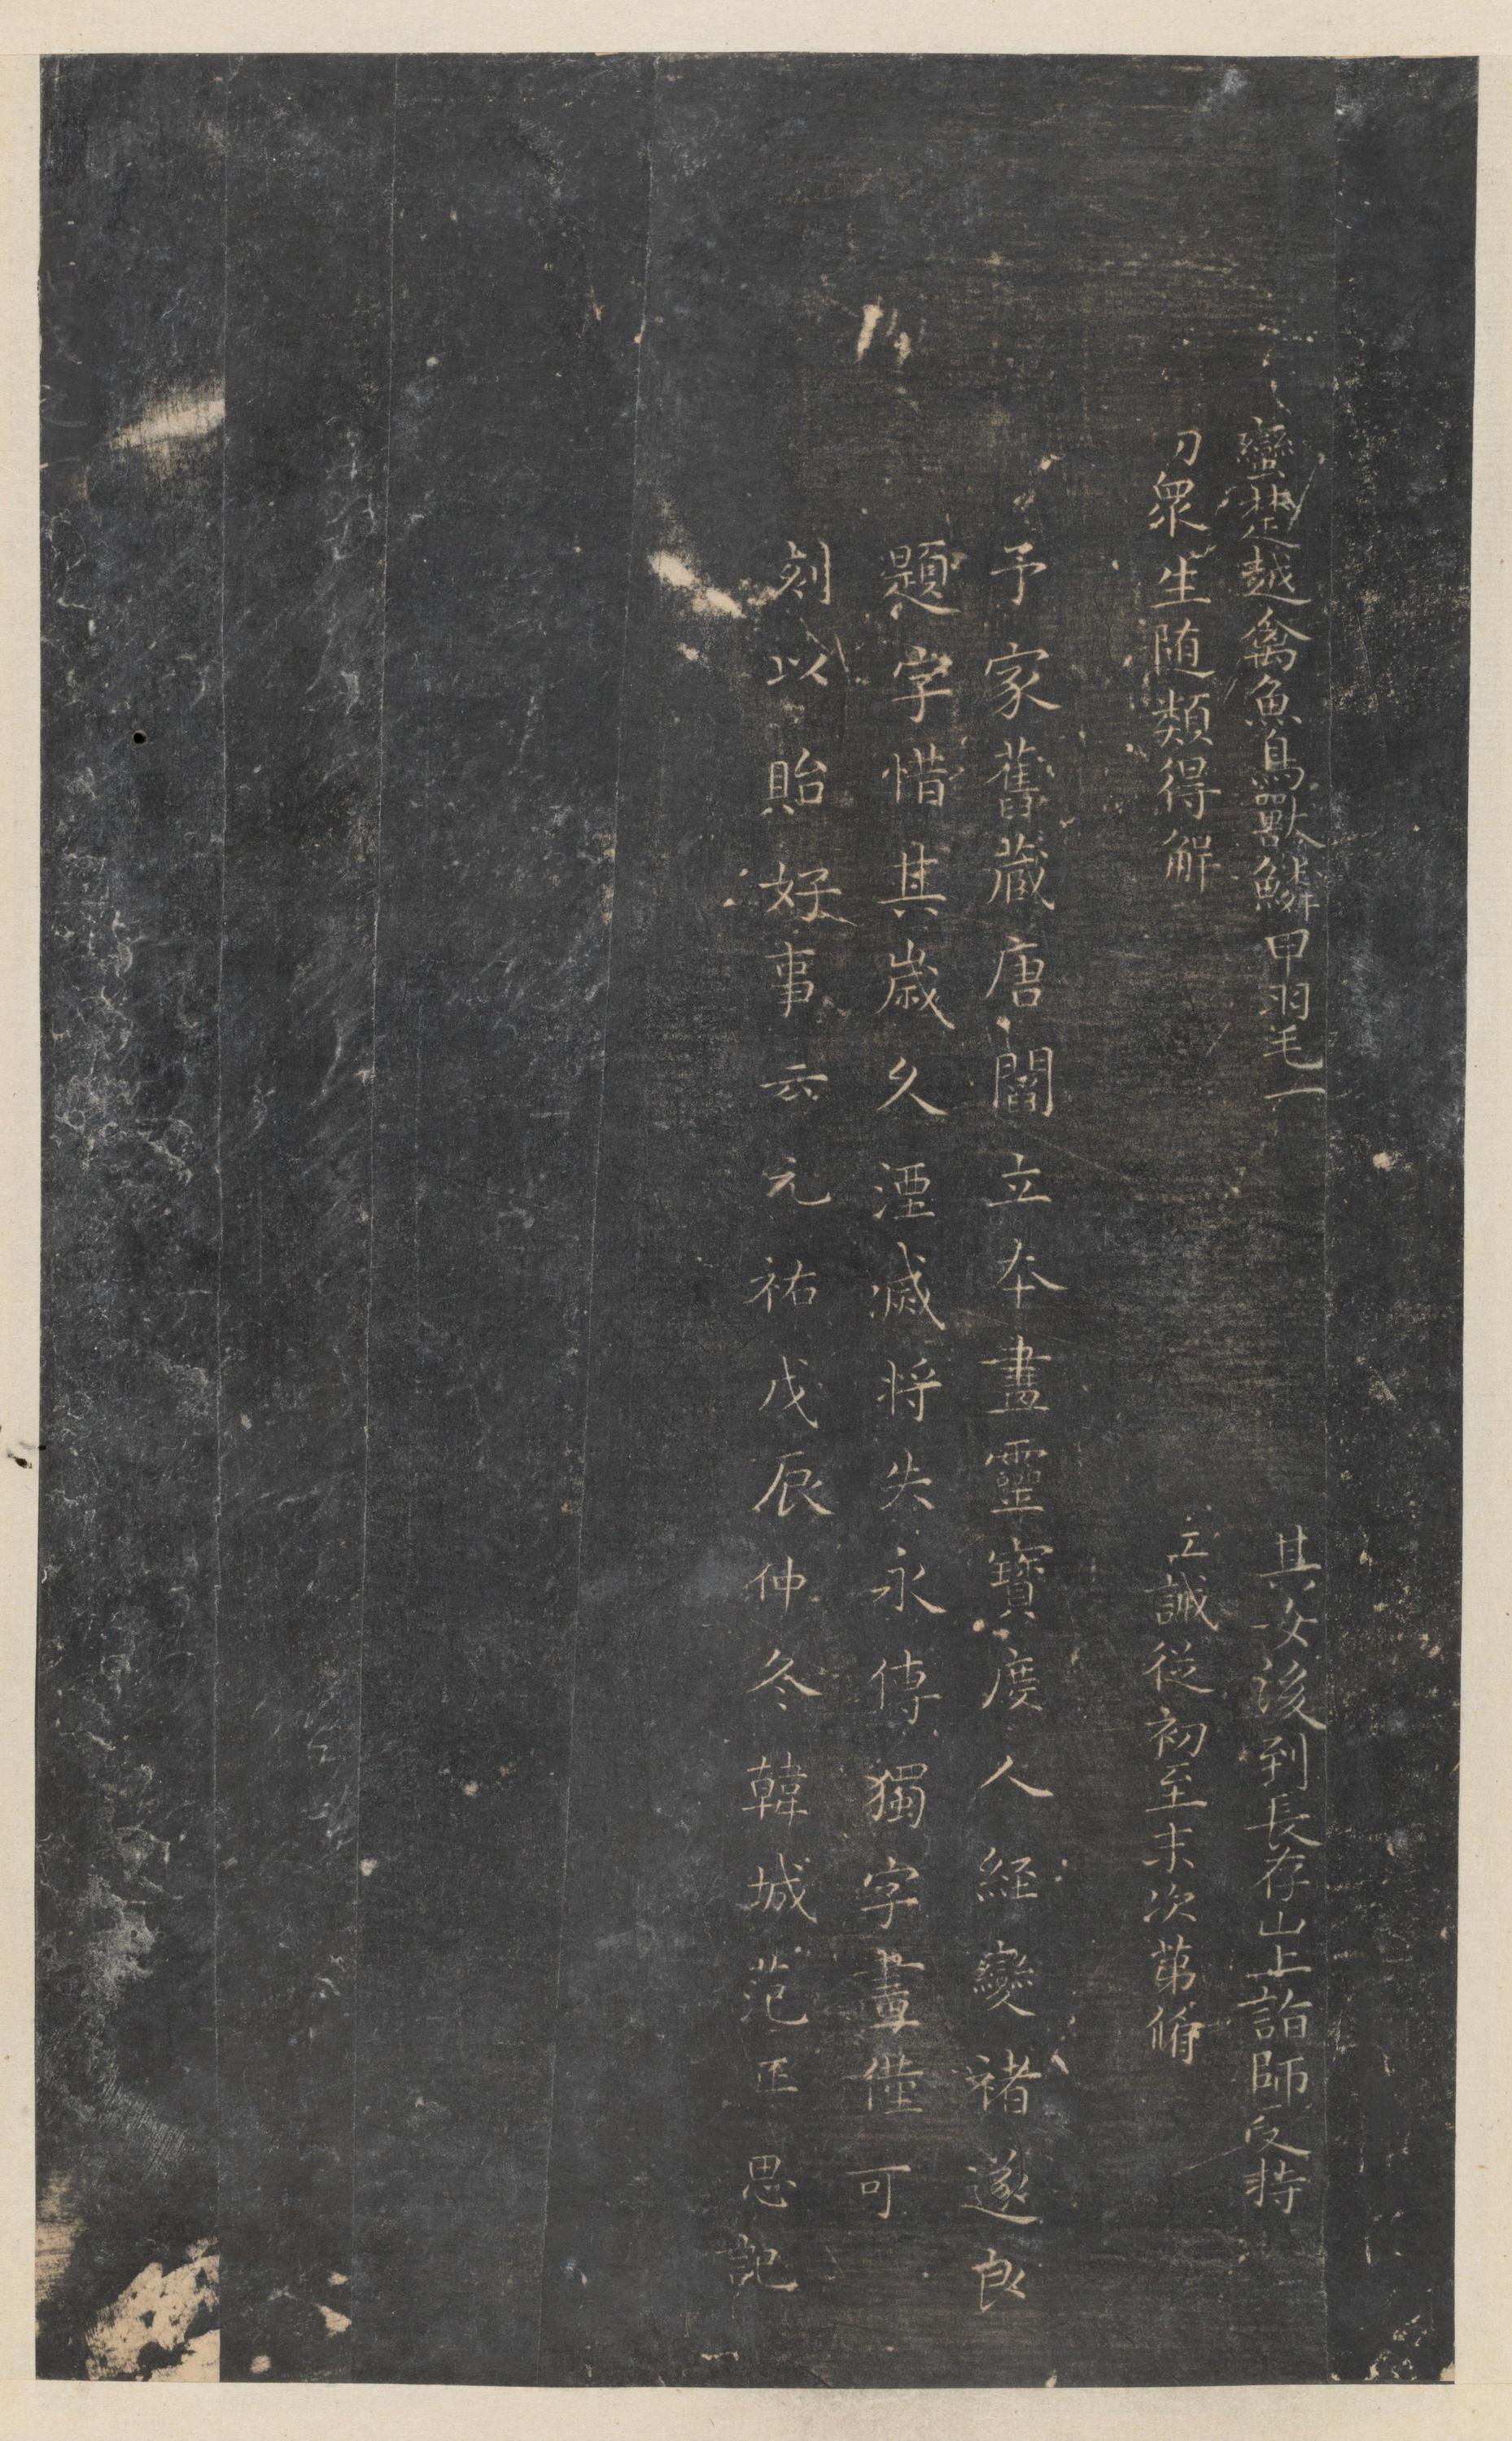 蠻楚越禽魚鳥獸鱗甲羽毛一
刀眾生随類得解
其女後到長存山上詣師受持
立誠從初至末次苐脩
予家舊藏唐閻立本畫靈寶度人經變褚遂良
題字惜其歲久湮滅將失永傳獨字畫僅可
刻以貽好事云元祐戊辰仲冬韓城范正思記